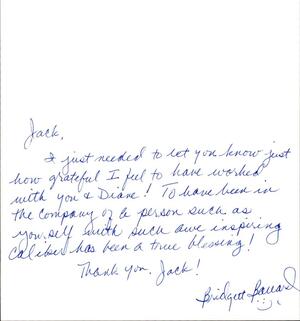 Jack,
I just needed to let you know just
how grateful I feel to have worked
with you & Diane! To have been in
the company of a person such as
yourself with such awe inspiring
caliber has been a true blessing!
Thank you, Jack!
Bridgett